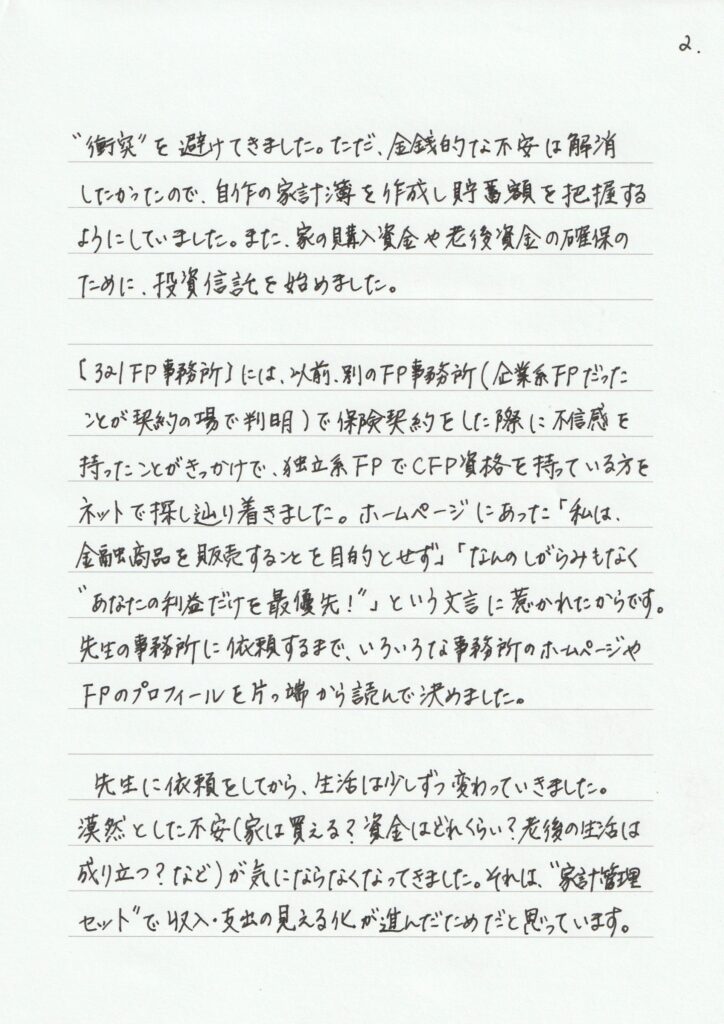 2.
"衝突"を避けてきました。ただ、金銭的な不安は解消
したかったので、自作の家計簿を作成し貯蓄額を把握する
ようにしていました。また、家の購入資金や老後資金の確保の
ために、投資信託を始めました。
【321FP事務所】には、以前、別のFP事務所(企業系FPだった
ことが契約の場で判明)で保険契約をした際に不信感を
持ったことがきっかけで、独立系FPでCFP資格を持っている方を
ネットで探し辿り着きました。ホームページにあった「私は、
金融商品を販売することを目的とせず」「なんのしがらみもなく
"あなたの利益だけを最優先!"」という文言に惹かれたからです。
先生の事務所に依頼するまで、いろいろな事務所のホームページや
FPのプロフィールを片っ端から読んで決めました。
先生に依頼をしてから、生活は少しずつ変わっていきました。
漠然とした不安(家は買える?資金はどれくらい?老後の生活は
成り立つ?など)が気にならなくなってきました。それは、"家計管理
セット"で収入・支出の見える化が進んだためだと思っています。